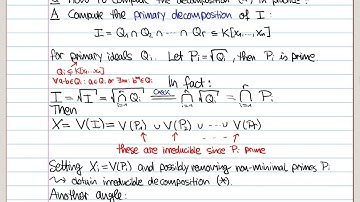 Q How to compute the decomposition (*) in practice?
A Compute the primary decomposition of I:
I = Q₁ ∩ Q₂ ∩ ⋯ ∩ Qᵣ ⊆ K[x₁,...,xₙ]
for primary ideals Qᵢ. Let Pᵢ = √Qᵢ, then Pᵢ is prime.
Qᵢ ⊆ K[x₁,...,xₙ]
∀ a·b ∈ Qᵢ: a ∈ Qᵢ or ∃m: bᵐ ∈ Qᵢ
In fact:
I = √I = √∩Qᵢ = ∩√Qᵢ = ∩Pᵢ
Then
X = V(I) = V(P₁) ∪ V(P₂) ∪ ⋯ ∪ V(Pᵣ)
these are irreducible since Pᵢ prime
Setting Xᵢ = V(Pᵢ) and possibly removing non-minimal primes Pᵢ
⇝ obtain irreducible decomposition (*).
Another angle: